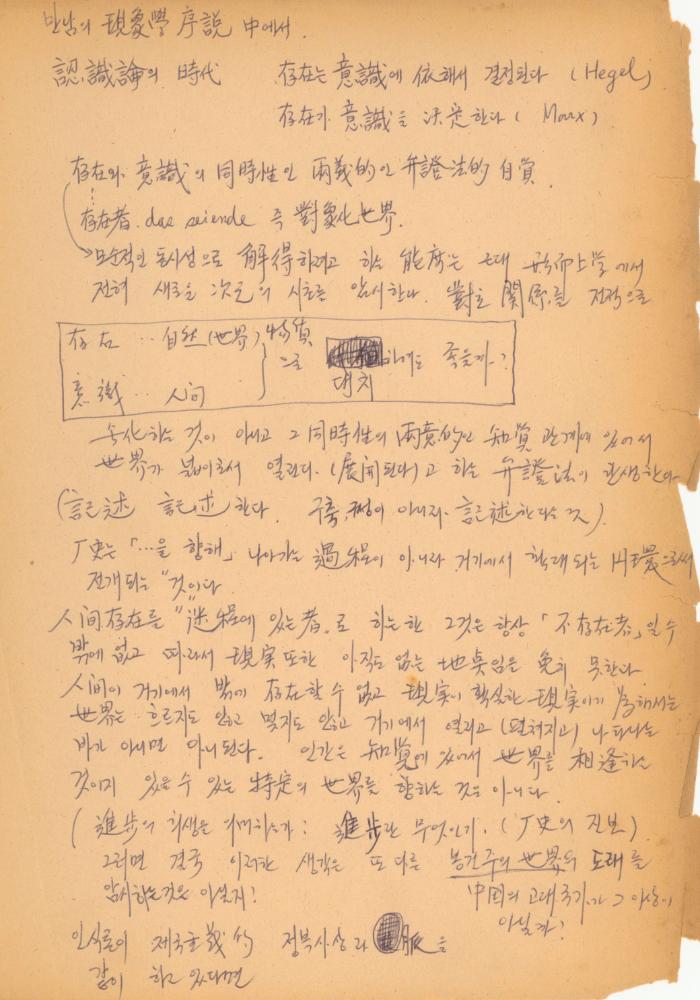 만남의 現象學 序說 中에서.
認識論의 時代 存在는 意識에 依해서 결정된다 (Hegel)
存在가 意識을 決定한다 ( Marx )
存在와 意識의 同時性인 兩義的인 弁證法的 自質.
存在者. das seiende 즉 對象化世界.
모순적인 동시성으로 解得하려고 하는 態度는 근대 形而上学에서
전혀 새로운 次元의 시초를 암시한다. 對立 関係를 전적으로
存在 … 自然(世界) 物質
으로 하여도 좋을까?
대치
意識 … 人间
化하는 것이 아니고 그 同時性의 兩意的인 知覚 관계에 있어서
世界가 넓이로서 열린다. (展開된다)고 하는 弁證法이 탄생한다
(記述 記述한다. 구축, 정이 아니라. 記述한다는 것).
厂史는「…을 향해」나아가는 過程이 아니라 거기에서 확대되는 円環으로써
전개되는 "것이다
人间存在를 "途程에 있는者,로 하는한 그것은 항상「不存在者」일 수
밖에 없고 따라서 現実 또한 아직도 없는 地奌임을 免치 못한다.
人间이 거기에서 밖에 存在할 수 없고 現実이 확실한 現実이기 為해서는
世界는 흐르지도 않고 멎지도 않고 거기에서 열리고 (펼쳐지고) 나타나는
바가 아니면 아니된다. 인간은 知覚에 있어서 世界를 相逢하는
것이지 있을 수 있는 特定의 世界를 향하는 것은 아니다.
( 進步의 희생은 의미하는가: 進步란 무엇인가. (厂史의 진보)
그러면 결국 이러한 생각은 또 다른 봉건주의 世界의 도래를
암시하는것은 아닐지!
中国의 고대국가가 그 이상이
아닐까?
인식론이 제국主義的 정복사상과 脈을
같이 하고 있다면